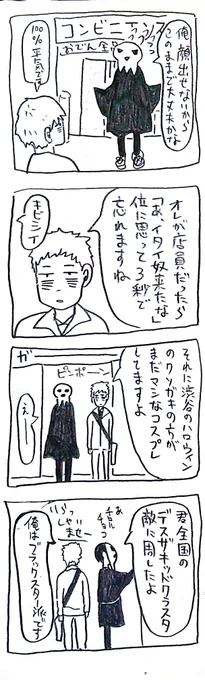 コンビニ
おでん全
俺顔出せないから
このままで大丈夫かな
100%
平気です
オレが店員だったら
「あ、イタイ奴来たな」
位に思って3秒で
忘れますね
キビシイ
それに渋谷のハロウィン
のクソガキの方が
まだマシなコスプレ
してますよ
ガー
ピンポーン
えー
君全国の
デスザキッドクラスタ
敵に回したよ
あ
チョコ
いらっ
しゃいませー
俺はブラックスター派です